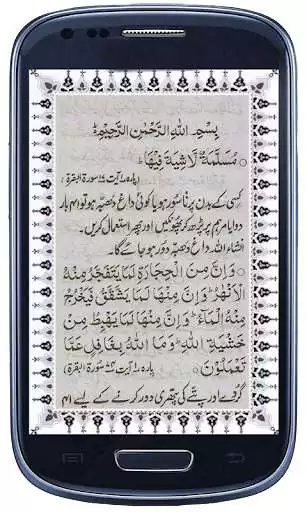 بِسْمِ اللّٰهِ الرَّحْمٰنِ الرَّحِيْمِ
مُسَلَّمَةٌ لَّا شِيَةَ فِيْهَا
پارہ ۱ آیت سورۃ البقرۃ
کسی کے بدن پر ناسور ہو یا کوئی داغ دھبّہ ہو تو ۴۱ بار
دوا یا مرہم پر پڑھ کر پھونکیں اور پھر استعمال کریں۔
انشاء اللہ داغ دھبّہ دور ہو جائے گا۔
وَاِنَّ مِنَ الْحِجَارَةِ لَمَا يَتَفَجَّرُ مِنْهُ
الْاَنْهٰرُ وَاِنَّ مِنْهَا لَمَا يَشَّقَّقُ فَيَخْرُجُ
مِنْهُ الْمَآءُ وَاِنَّ مِنْهَا لَمَا يَهْبِطُ مِنْ
خَشْيَةِ اللّٰهِ وَمَا اللّٰهُ بِغَافِلٍ عَمَّا
تَعْمَلُوْنَ پارہ ۱ آیت ۷۴ سورۃ البقرۃ
گردے اور پتے کی پتھری دور کرنے کے لیے ۴۱